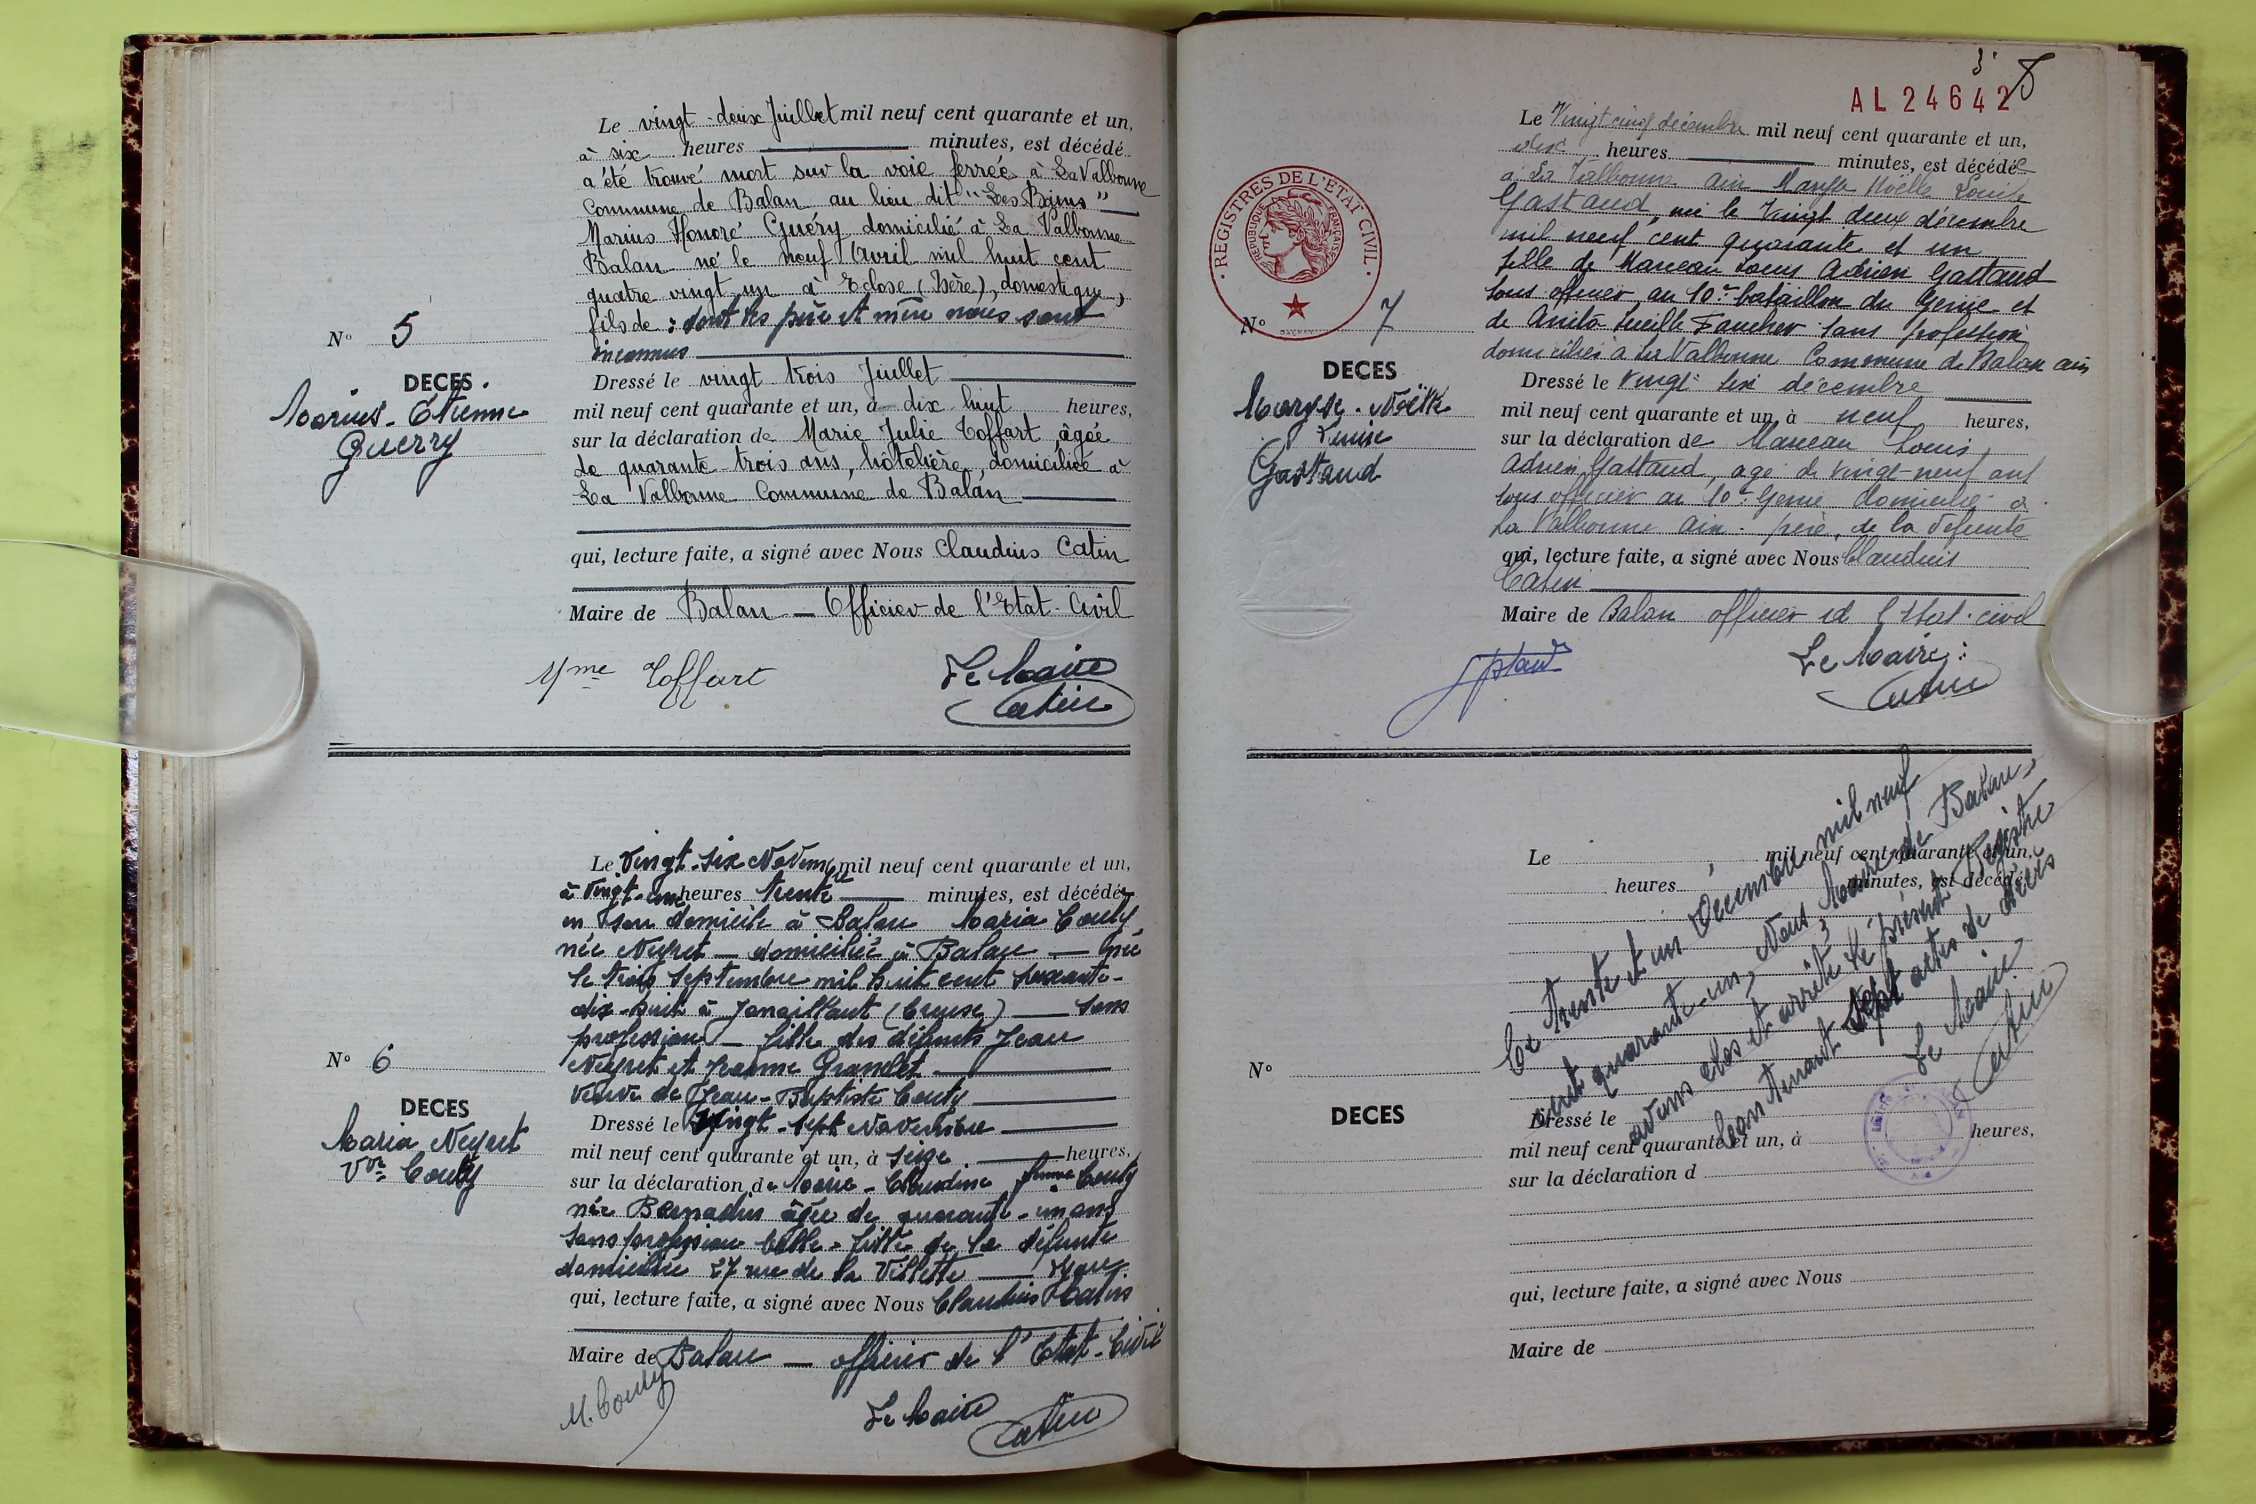 Le vingt-deux Juillet mil neuf cent quarante et un,
à six heures minutes, est décédé
a été trouvé mort sur la voie ferrée à La Valbonne
Commune de Balan au lieu dit "Les Brins"
Marius Honoré Guéry domicilié à La Valbonne
Balan né le neuf Avril mil huit cent
quatre vingt un à Eclose (Isère), domestique,
fils de : dont les père et mère nous sont
inconnus
N° 5
DECES.
Marius-Etienne
Guerry
Dressé le vingt trois Juillet
mil neuf cent quarante et un, à dix huit heures,
sur la déclaration de Marie Julie Toffart âgée
de quarante trois ans, hôtelière, domiciliée à
La Valbonne Commune de Balan
qui, lecture faite, a signé avec Nous Claudius Catin
Maire de Balan — Officier de l'Etat-Civil
Mme Toffart
Le Maire
Catin
Le Vingt-six Novembre mil neuf cent quarante et un,
à vingt-une heures trente minutes, est décédée
en son domicile à Balan Maria Couty
née Neyret — domiciliée à Balan — née
le trois septembre mil huit cent soixante-
dix-huit à Janaillant (Creuse) — sans
profession — fille des défunts Jean
Neyret et Jeanne Grandet
veuve de Jean-Baptiste Couty
N° 6
DECES
Maria Neyret
Vve Couty
Dressé le Vingt-sept Novembre
mil neuf cent quarante et un, à seize heures,
sur la déclaration de Marie-Claudine femme Couty
née Bernadin âgée de quarante-un ans
sans profession belle-fille de la défunte
domiciliée 27 rue de la Villette — Lyon
qui, lecture faite, a signé avec Nous Claudius Catin
Maire de Balan — officier de l'Etat-Civil
M. Couty
Le Maire
Catin
3
AL 24642
Le Vingt cinq décembre mil neuf cent quarante et un,
dix heures minutes, est décédée
a La Valbonne ain Maryse Noëlle Louise
Gastaud, née le Vingt deux décembre
mil neuf cent quarante et un
fille de Manceau Louis Adrien Gastaud
sous officier au 10e bataillon du Genie et
de Anita Lucille Faucher sans profession
domiciliés à La Valbonne Commune de Balan ain
REGISTRES DE L'ETAT CIVIL
REPUBLIQUE FRANÇAISE
N° 7
DECES
Maryse-Noëlle
Louise
Gastaud
Dressé le Vingt six décembre
mil neuf cent quarante et un, à neuf heures,
sur la déclaration de Manceau Louis
Adrien Gastaud, agé de vingt-neuf ans
sous officier au 10e Genie domicilié a
La Valbonne ain. père, de la défunte
qui, lecture faite, a signé avec Nous Claudius
Catin
Maire de Balan officier de l'Etat-civil
Le Maire:
Catin
Le mil neuf cent quarante et un,
heures minutes, est décédé
N°
DECES
Dressé le
mil neuf cent quarante et un, à heures,
sur la déclaration d
qui, lecture faite, a signé avec Nous
Maire de
Ce trente et un Décembre mil neuf
cent quarante-un, Nous Maire de Balan,
avons clos et arrêté le présent Registre
contenant Sept actes de décès
Le Maire
Catin